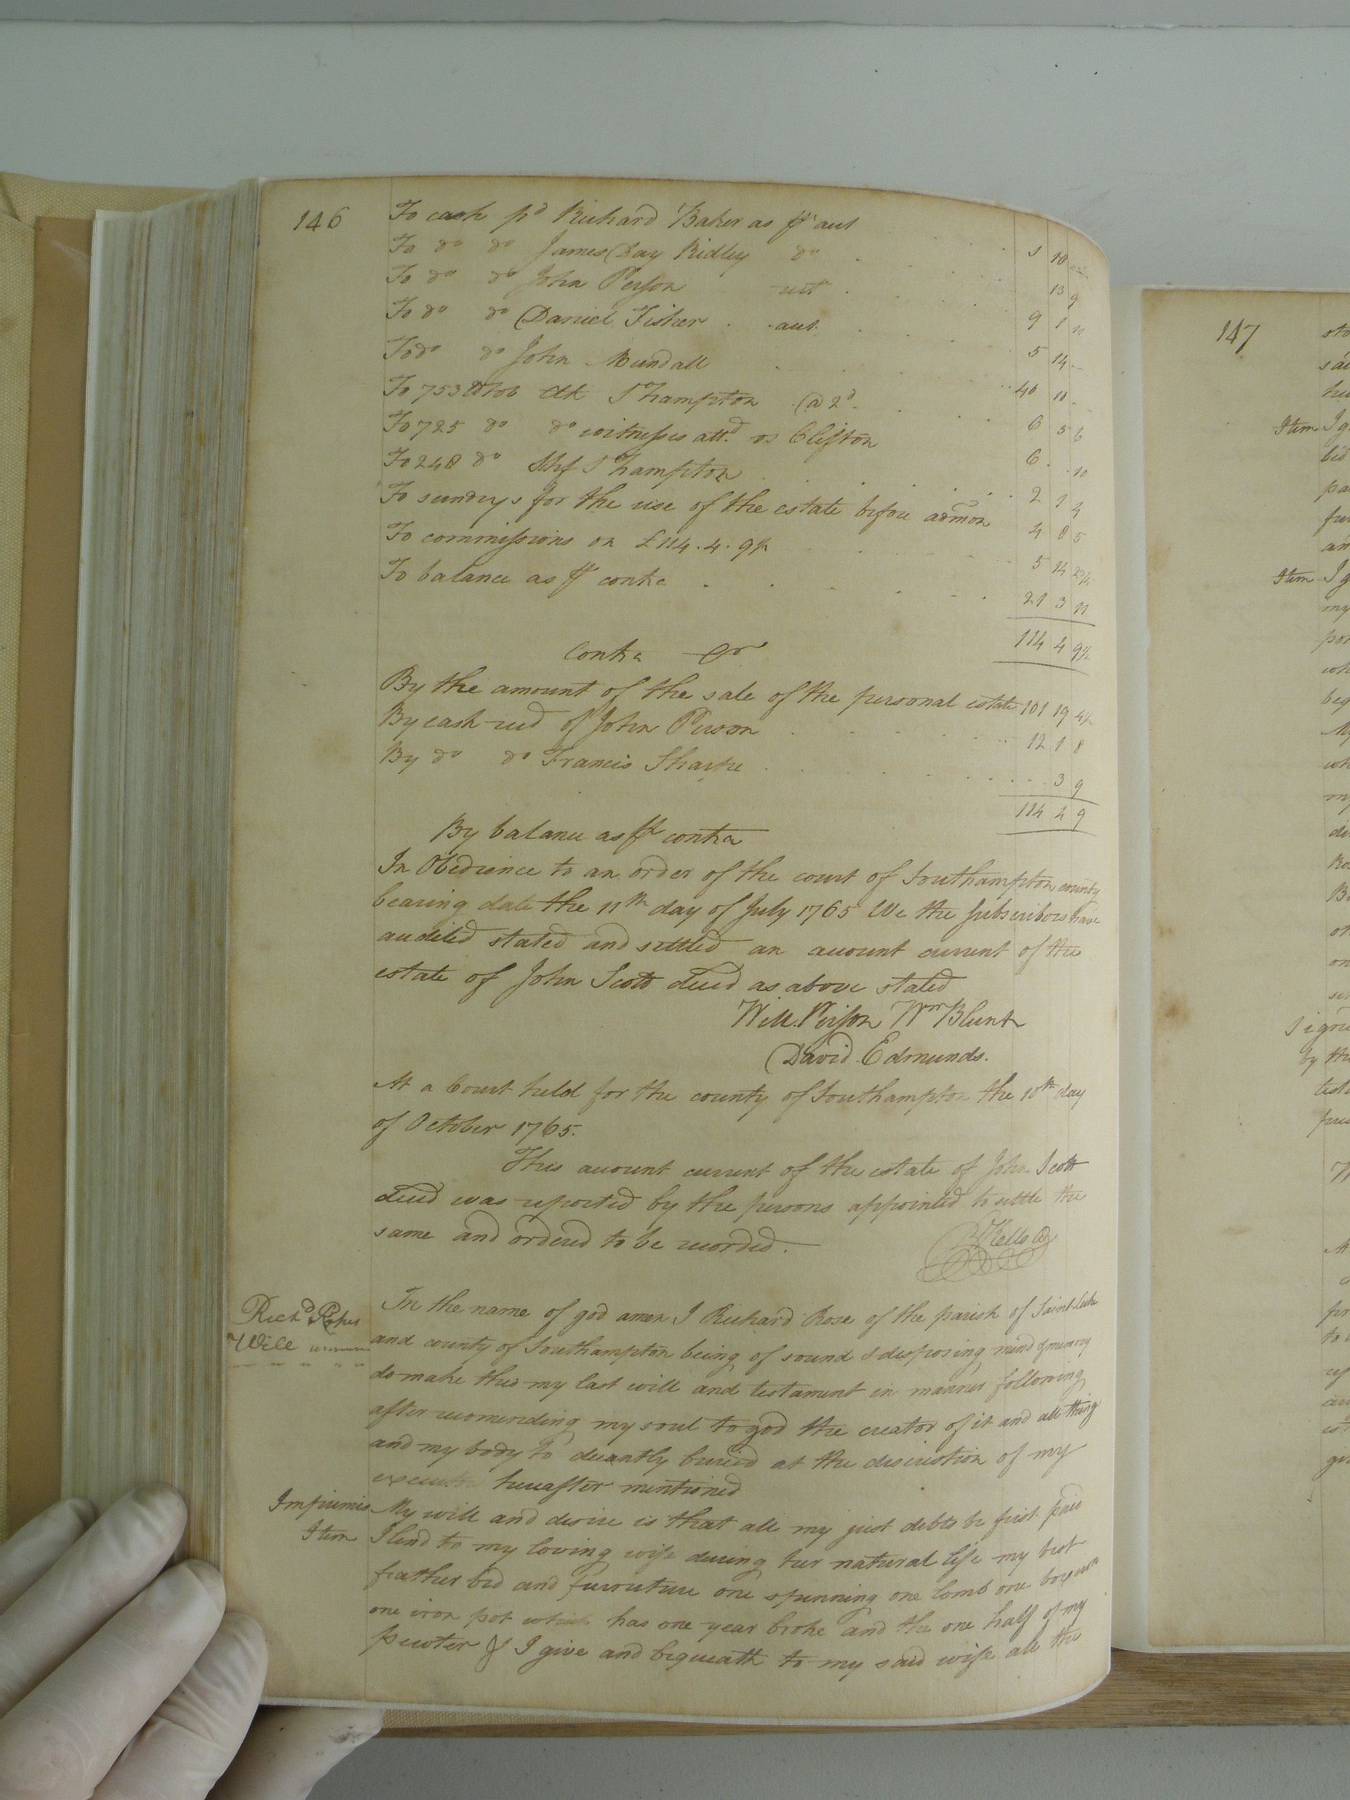 146
To cash pd Richard Baker as pr act
To do do James Day Ridley do 5 10
To do do John Person act 13 9
To do do Daniel Fisher act 9 1 10
To do do John Mundall 5 14
To 753 lb Tob Clk S Thampton @ 2d 40 11
To 725 do do witnesses attd vs Clifton 6 5 6
To 248 do Shf S Thampton 6 10
To sundrys for the use of the estate before admon 2 1 4
To commissions on £114.4.9½ 4 8 5
To balance as pr contra 5 14 2½
21 3 11
114 4 9½
Contra Cr
By the amount of the sale of the personal estate 101 19 4½
By cash recd of John Person 12 1 8
By do do Francis Sharpe 3 9
114 4 9
By balance as pr contra
In Obedience to an order of the court of Southampton county
bearing date the 11th day of July 1765 We the subscribers have
audited stated and settled an account current of the
estate of John Scott decd as above stated
Will. Person Wm Blunt
David Edmunds.
At a Court held for the county of Southampton the 10th day
of October 1765.
This account current of the estate of John Scott
decd was reported by the persons appointed to settle the
same and ordered to be recorded.
Kello
Richd
Will
In the name of god amen I Richard Rose of the parish of Saint Luke
and county of Southampton being of sound & desposing mind & memory
do make this my last will and testament in manner following
after recomending my soul to god the creator of it and all things
and my body to decantly buried at the discrestion of my
hereafter mentioned
Impiumis My will and desire is that all my just debts be first paid
Item I lend to my loving wife during her natural life my best
feather bed and furniture one spinning one comb one box iron
one iron pot which has one year broke and the one half of my
pewter & I give and bequeath to my said wife all the
147
Item I g
Item I g
my